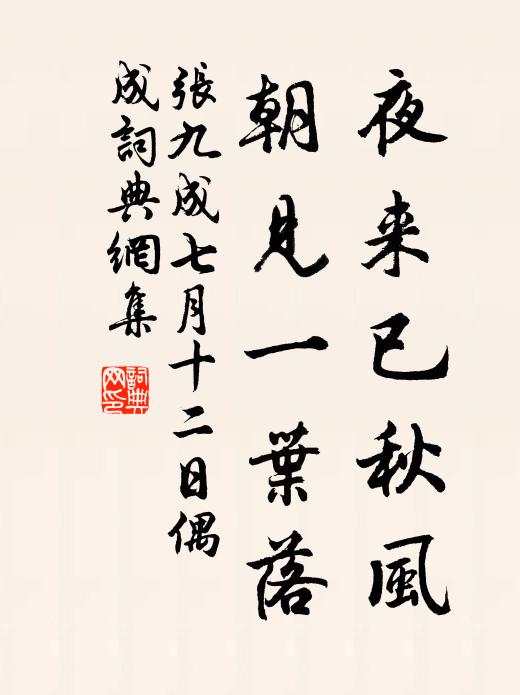 夜来已秋風
朝見一葉落
張九成七月十二日偶
成詞典網集
詞典
网印